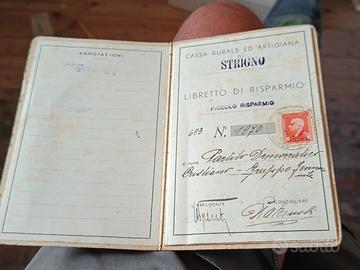 ANNOTAZIONI
CASSA RURALE ED ARTIGIANA
DI
STRIGNO
LIBRETTO DI RISPARMIO
PICCOLO RISPARMIO
603 N° 1970
Partito Democratico
Cristiano - Gruppo Femmi
nile
PRESIDENTE
CONSIGLIERE
subito